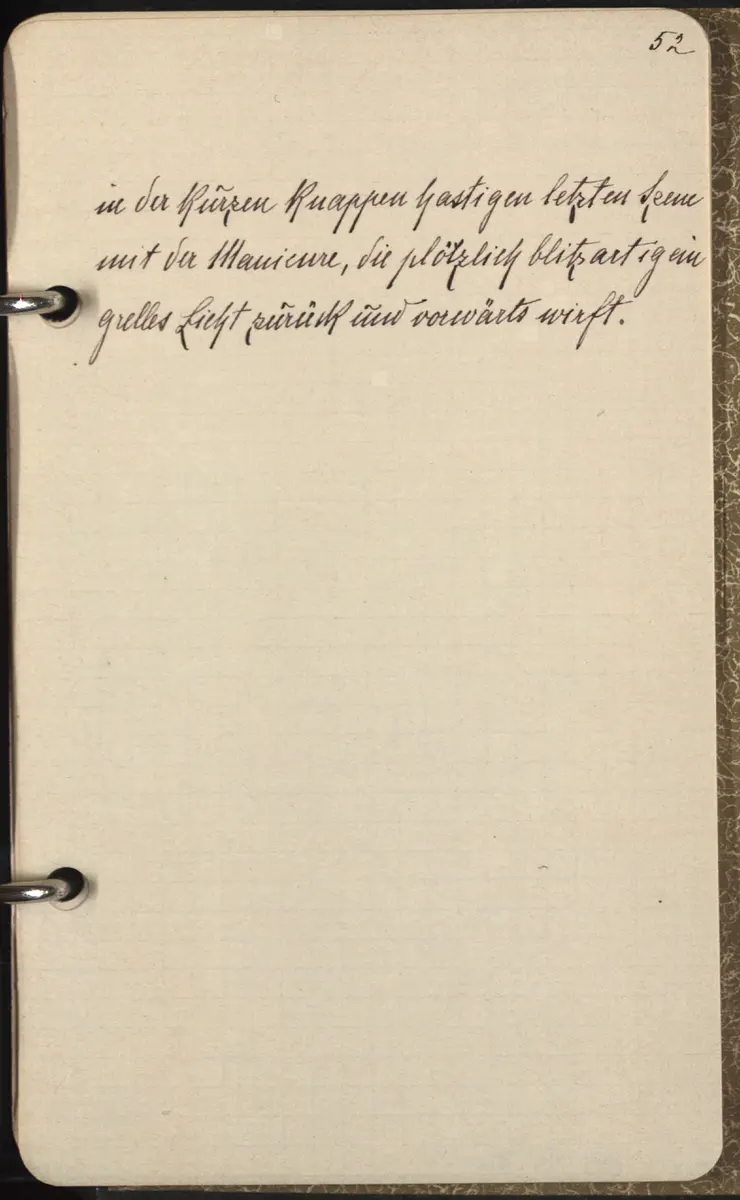 52
in der kurzen knappen hastigen letzten Szene
mit der Manicure, die plötzlich blitzartig ein
grelles Licht zurück und vorwärts wirft.